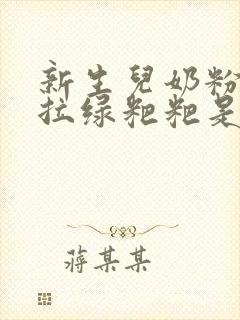 新生兒奶粉
拉绿粑粑是
蒋某某